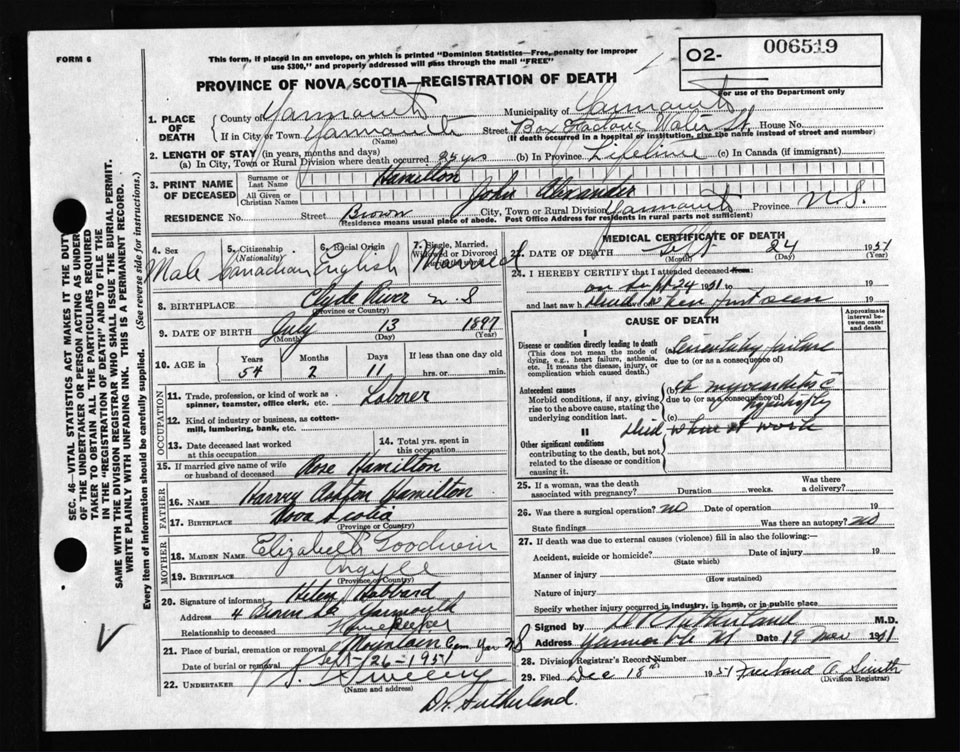 FORM 6
This form, if placed in an envelope, on which is printed "Dominion Statistics—Free, penalty for improper use $300," and properly addressed will pass through the mail "FREE"
O2- 006519
For use of the Department only
PROVINCE OF NOVA SCOTIA—REGISTRATION OF DEATH
1. PLACE OF DEATH
County of Yarmouth Municipality of Yarmouth
If in City or Town Yarmouth (Name) Street Water St. House No.
(If death occurred in a hospital or institution, give the name instead of street and number)
2. LENGTH OF STAY (in years, months and days)
(a) In City, Town or Rural Division where death occurred 25 yrs (b) In Province Lifetime (c) In Canada (if immigrant)
3. PRINT NAME OF DECEASED
Surname or Last Name Hamilton
All Given or Christian Names John Alexander
RESIDENCE No. Street Brown City, Town or Rural Division Yarmouth Province N.S.
(Residence means usual place of abode. Post Office Address for residents in rural parts not sufficient)
4. Sex Male
5. Citizenship (Nationality) Canadian
6. Racial Origin English
7. Single, Married, Widowed or Divorced Married
8. BIRTHPLACE Clyde River N.S
(Province or Country)
9. DATE OF BIRTH July 13 1897
(Month) (Day) (Year)
10. AGE in Years Months Days If less than one day old
54 2 11 hrs. or min.
OCCUPATION
11. Trade, profession, or kind of work as spinner, teamster, office clerk, etc. Laborer
12. Kind of industry or business, as cotton-mill, lumbering, bank, etc.
13. Date deceased last worked at this occupation
14. Total yrs. spent in this occupation
15. If married give name of wife or husband of deceased Rose Hamilton
FATHER
16. NAME Harry Ashton Hamilton
17. BIRTHPLACE Nova Scotia
(Province or Country)
MOTHER
18. MAIDEN NAME Elizabeth Goodwin
19. BIRTHPLACE Argyle
(Province or Country)
20. Signature of informant Helen Hubbard
Address 4 Brown St Yarmouth
Relationship to deceased Housekeeper
21. Place of burial, cremation or removal Mountain Cem. Yar NS
Date of burial or removal Sept-26-1951
22. UNDERTAKER Sweeny
(Name and address)
Dr Sutherland.
MEDICAL CERTIFICATE OF DEATH
DATE OF DEATH Sept 24 1951
(Month) (Day) (Year)
24. I HEREBY CERTIFY that I attended deceased from:
on Sept 24 1951 to 19
and last saw h Dead when first seen 19
CAUSE OF DEATH
Approximate interval between onset and death
I
Disease or condition directly leading to death
(This does not mean the mode of dying, e.g., heart failure, asthenia, etc. It means the disease, injury, or complication which caused death.)
(a) failure
due to (or as a consequence of)
Antecedent causes
Morbid conditions, if any, giving rise to the above cause, stating the underlying condition last.
(b) ch myocarditis c
due to (or as a consequence of) hypertrophy
(c)
Died when at work
II
Other significant conditions
contributing to the death, but not related to the disease or condition causing it.
25. If a woman, was the death associated with pregnancy? Duration weeks. Was there a delivery?
26. Was there a surgical operation? no Date of operation 19
State findings Was there an autopsy? no
27. If death was due to external causes (violence) fill in also the following:—
Accident, suicide or homicide? Date of injury 19
(State which)
Manner of injury
(How sustained)
Nature of injury
Specify whether injury occurred in industry, in home, or in public place
Signed by Sutherland M.D.
Address Yarmouth NS Date 19 Nov 1951
28. Division Registrar's Record Number
29. Filed Dec 18th 1951 Freeland A. Smith
(Division Registrar)
SEC. 46—VITAL STATISTICS ACT MAKES IT THE DUTY OF THE UNDERTAKER OR PERSON ACTING AS UNDERTAKER TO OBTAIN ALL THE PARTICULARS REQUIRED IN THE "REGISTRATION OF DEATH" AND TO FILE THE SAME WITH THE DIVISION REGISTRAR WHO SHALL ISSUE THE BURIAL PERMIT.
WRITE PLAINLY WITH UNFADING INK. THIS IS A PERMANENT RECORD.
Every item of information should be carefully supplied. (See reverse side for instructions.)